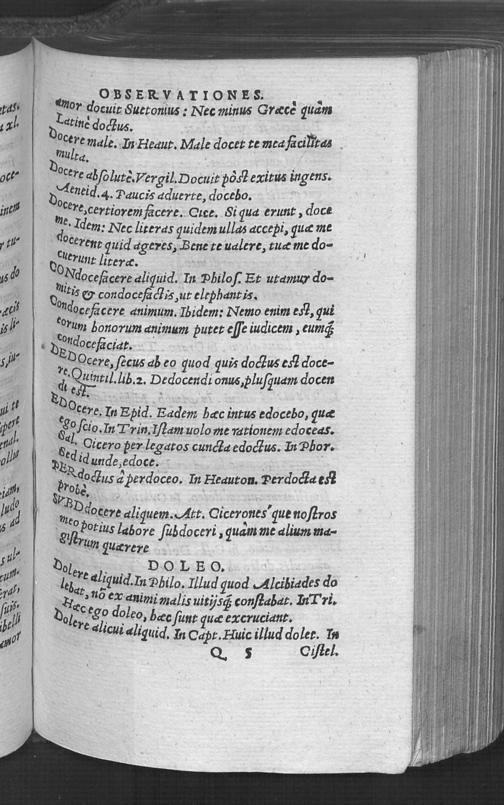 OBSERVATIONES.
amor docuit Suetonius: Nec minus Græcè quàm
Latinè doctus.
Docere male. In Heaut. Male docet te mea facilitas
multa.
Docere absolutè. Vergil. Docuit pòst exitus ingens.
Aeneid. 4. Paucis aduerte, docebo.
Docere, certiorem facere. Cice. Si qua erunt, doce
me. Idem: Nec literas quidem ullas accepi, quæ me
docerent quid ageres, Bene te ualere, tuæ me do-
cuerunt literæ.
CONdocefacere aliquid. In Philos. Et utamur do-
mitis & condocefactis, ut elephantis.
Condocefacere animum. Ibidem: Nemo enim est, qui
eorum bonorum animum putet esse iudicem, eumq́;
condocefaciat.
DEDOcere, secus ab eo quod quis doctus est doce-
re. Quintil. lib. 2. Dedocendi onus, plusquam docen
di est.
EDOcere. In Epid. Eadem hæc intus edocebo, quæ
ego scio. In Trin. Istam uolo me rationem edoceas.
Sal. Cicero per legatos cuncta edoctus. In Phor.
Sed id unde, edoce.
PERdoctus à perdoceo. In Heauton. Perdocta est
probè.
SVBDdocere aliquem. Att. Cicerones'que nostros
meo potius labore subdoceri, quàm me alium ma-
gistrum quærere
DOLEO.
Dolere aliquid. In Philo. Illud quod Alcibiades do
lebat, nō ex animi malis uitijsq́; constabat. In Tri.
Hæc ego doleo, hæc sunt quæ excruciant.
Dolere alicui aliquid. In Capt. Huic illud dolet. In
Q 5 Cistel.